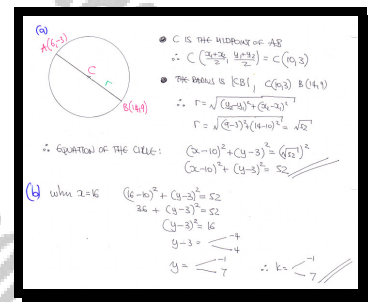 (a)
A(6,-3)
C
r
B(14,9)
• C IS THE MIDPOINT OF AB
∴ C ( (x₁+x₂)/2 , (y₁+y₂)/2 ) = C(10,3)
• THE RADIUS IS |CB| , C(10,3) B(14,9)
∴ r = √((y₂-y₁)²+(x₂-x₁)²)
r = √((9-3)²+(14-10)²) = √52
∴ EQUATION OF THE CIRCLE: (x-10)²+(y-3)² = (√52)²
(x-10)²+(y-3)² = 52
(b) when x=16 (16-10)²+(y-3)² = 52
36 + (y-3)² = 52
(y-3)² = 16
y-3 = -4
4
y = -1
7
∴ k = -1
7